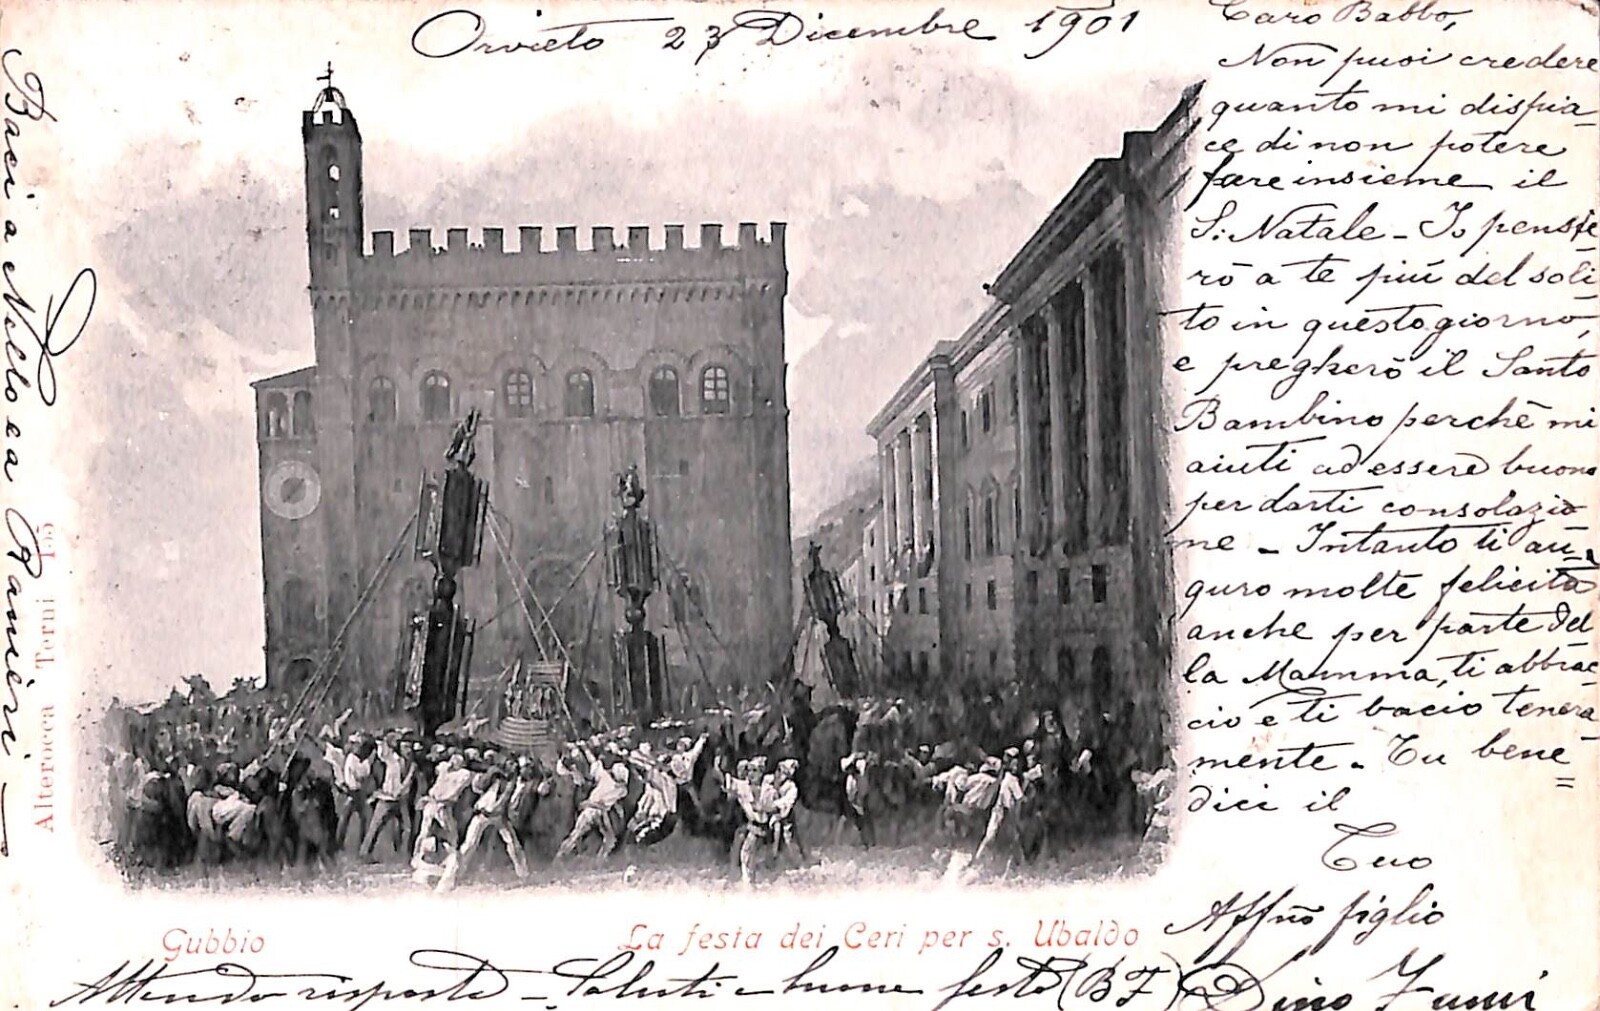 Orvieto 23 Dicembre 1901
Caro Babbo,
Non puoi credere
quanto mi dispia_
ce di non potere
fare insieme il
S. Natale - Io pense
rò a te più del soli_
to in questo giorno,
e pregherò il Santo
Bambino perchè mi
aiuti ad essere buono
per darti consolazio
ne - Intanto ti au_
guro molte felicità
anche per parte del
la Mamma, ti abbrac_
cio e ti bacio tenera
mente - Tu bene=
dici il
Tuo
Affmo figlio
Dino
Baci a Nello e a Ranieri -
Alterocca Terni 155
Gubbio
La festa dei Ceri per s. Ubaldo
Attendo risposta - Saluti e buone feste (B F)